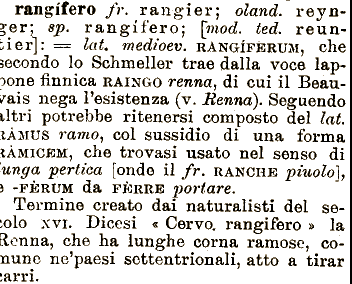 rangífero fr. rangier; oland. reyn-
ger; sp. rangífero; [mod. ted. reun-
tier]: = lat. medioev. RANGÍFERUM, che
secondo lo Schmeller trae dalla voce lap-
pone finnica RAINGO renna, di cui il Beau-
vais nega l'esistenza (v. Renna). Seguendo
altri potrebbe ritenersi composto del lat.
RÀMUS ramo, col sussidio di una forma
RÀMICEM, che trovasi usato nel senso di
lunga pertica [onde il fr. RANCHE piuolo],
e -FÈRUM da FÈRRE portare.
Termine creato dai naturalisti del se-
colo XVI. Dicesi « Cervo. rangifero » la
Renna, che ha lunghe corna ramose, co-
mune ne'paesi settentrionali, atto a tirar
carri.